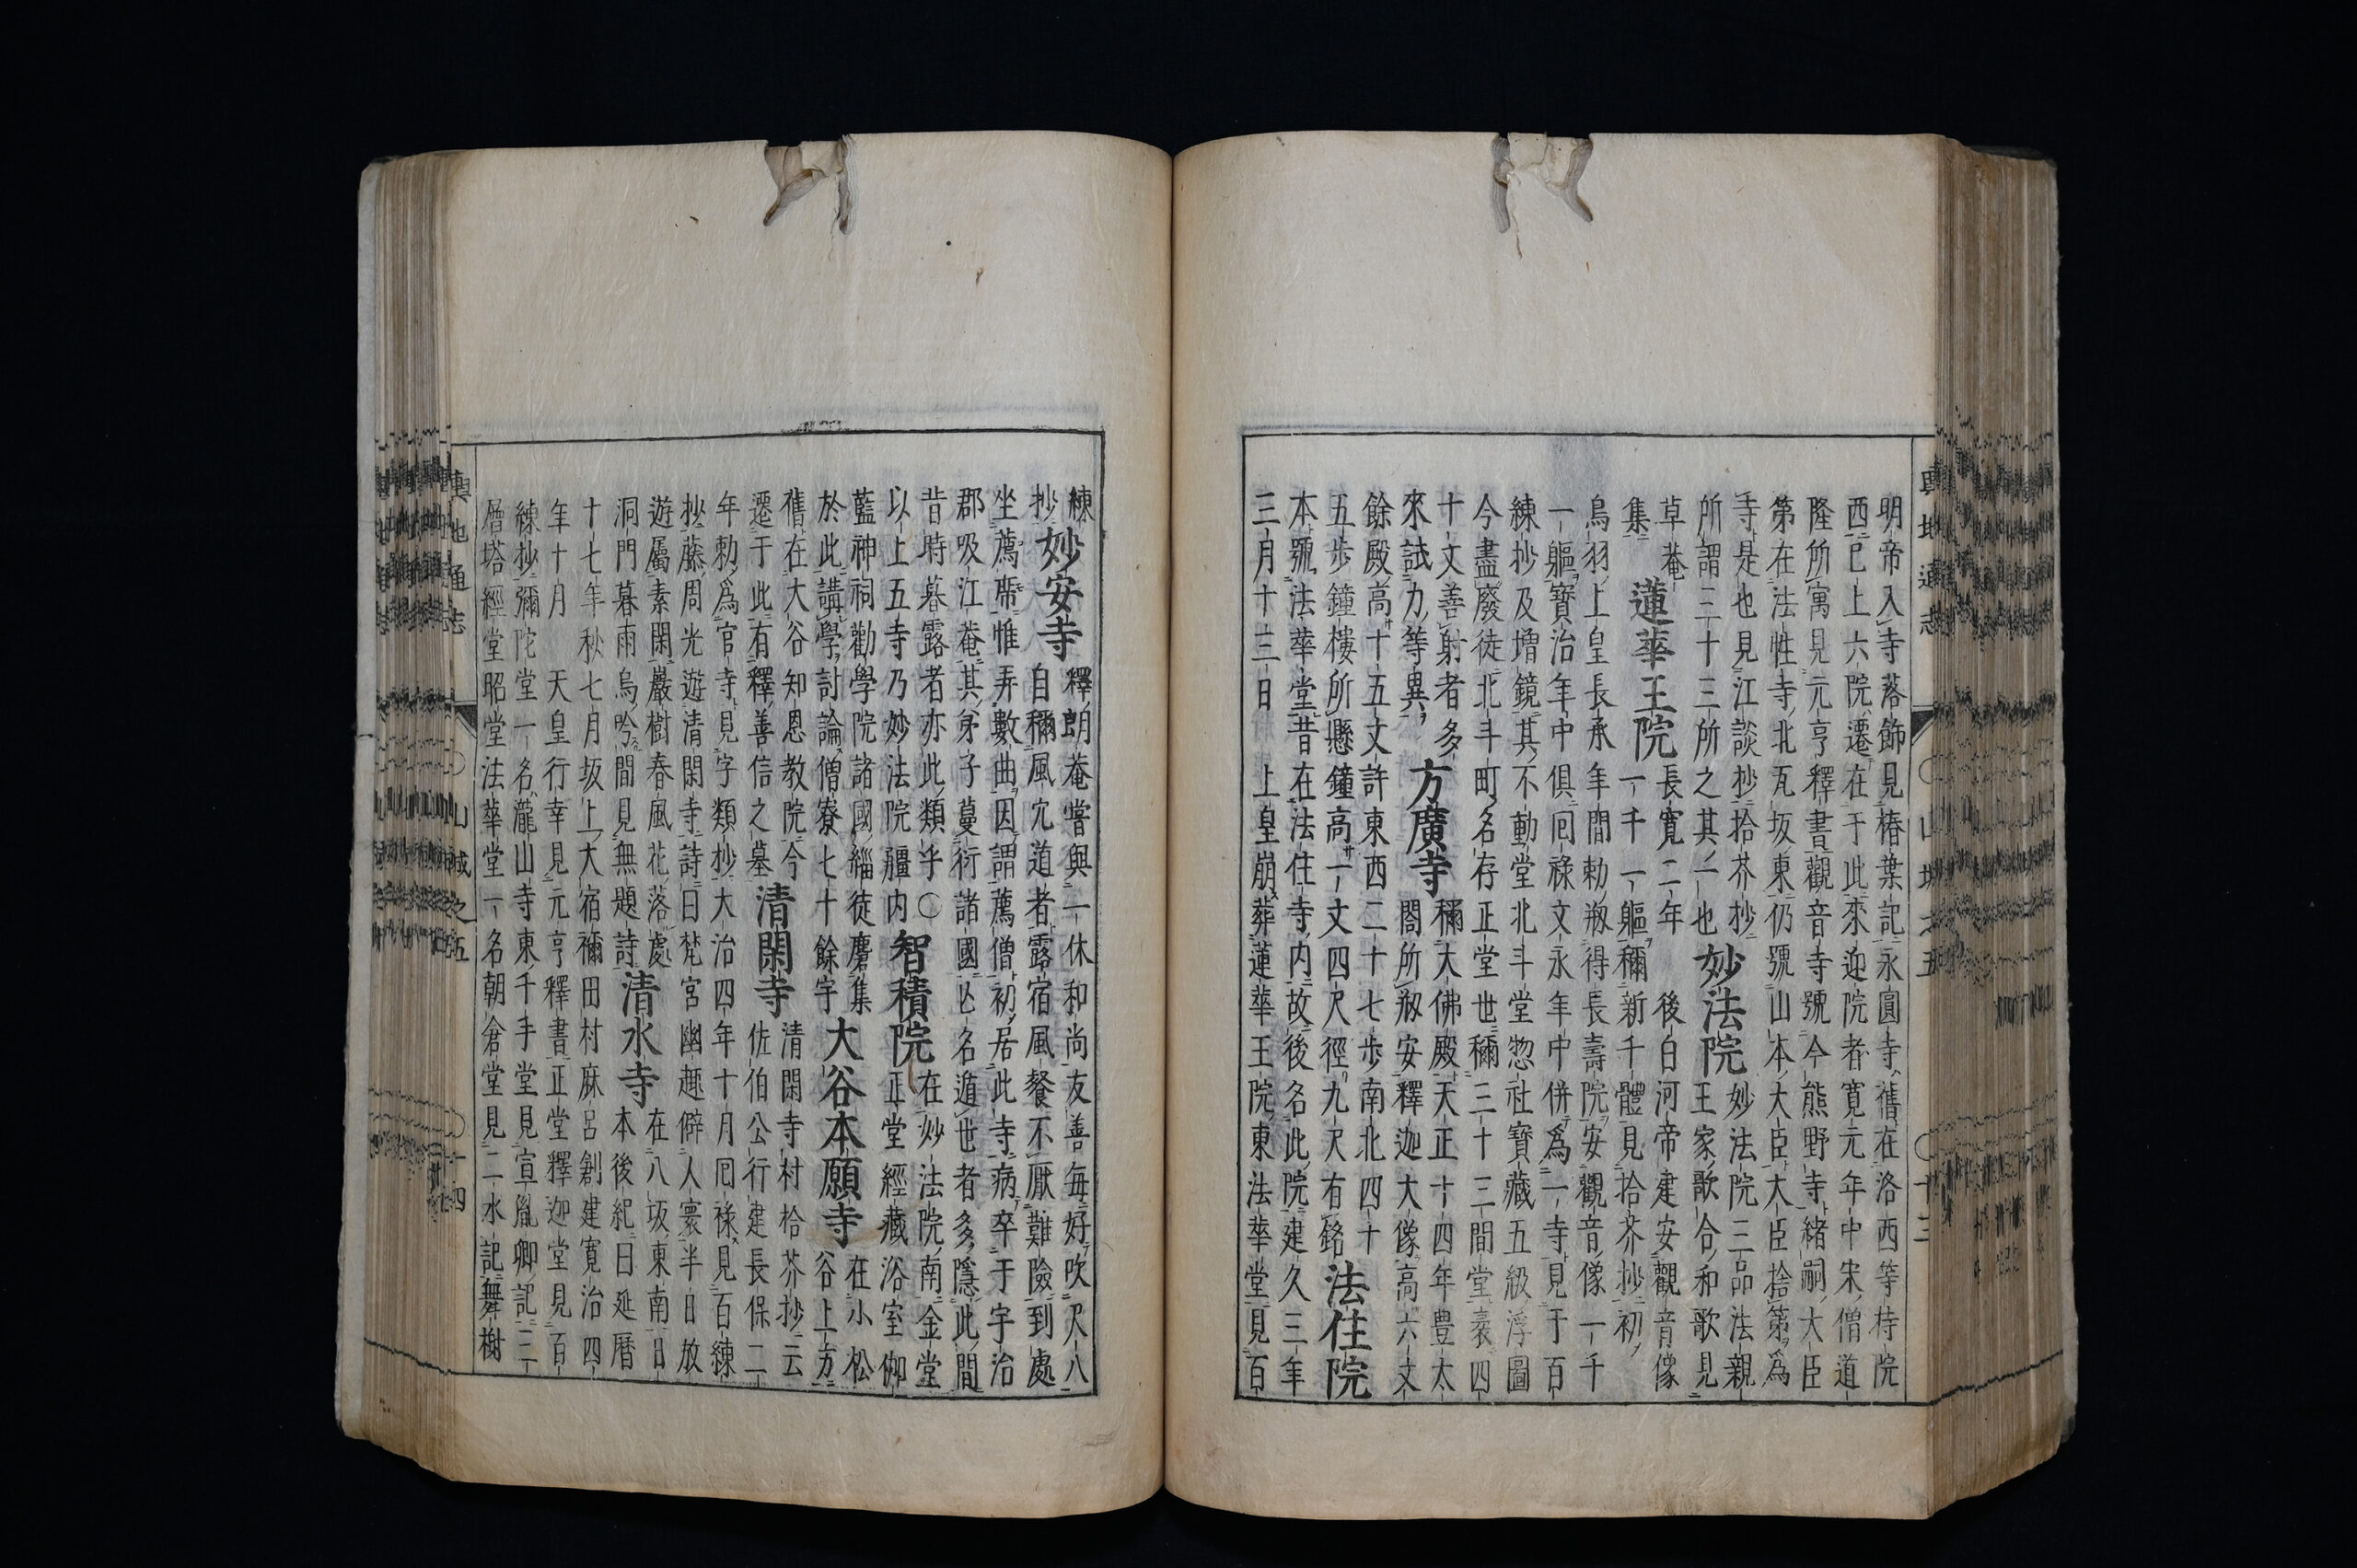 明帝入寺落飾見椿葉記永圓寺舊在洛西等持院
西已上六院遷在于此來迎院者寛元年中宋僧道
隆所寓見元亨釋書觀音寺號今熊野寺緒嗣大臣
第在法性寺北瓦坂東仍號山本大臣大臣捨第爲
寺是也見江談抄拾芥抄
所謂三十三所之其一也
妙法院
妙法院三品法親
王家歌合和歌見
草菴
集
長寛二年 後白河帝建安觀音像
蓮華王院
一千一軀稱新千體見拾芥抄初
鳥羽上皇長承年間勅剏得長壽院安觀音像一千
一軀寶治年中俱囘祿文永年中併爲一寺見于百
練抄及增鏡其不動堂北斗堂惣社寶藏五級浮圖
今盡廢徒北斗町名存正堂世稱三十三間堂袤四
十丈善射者多
來試力等異
方廣寺
稱大佛殿天正十四年豊太
閤所剏安釋迦大像高六丈
餘殿高十五丈許東西二十七步南北四十
五步鐘樓所懸鐘高一丈四尺徑九尺有銘
法住院
本號法華堂昔在法住寺内故後名此院建久三年
三月十三日 上皇崩葬蓮華王院東法華堂見百
輿地通志 ○山城之五 ○十三
練
抄
妙安寺
釋朗菴嘗與一休和尚友善每好吹尺八
自稱風穴道者露宿風餐不厭難險到處
坐薦席惟弄數曲因謂薦僧初居此寺病卒于宇治
郡吸江菴其弟子蔓衍諸國亡名遁世者多隱此間
昔時暮露者亦此類乎○
以上五寺乃妙法院疆内
智積院
在妙法院南金堂
正堂經藏浴室伽
藍神祠勸學院諸國緇徒麕集
於此講學討論僧寮七十餘宇
大谷本願寺
在小松
谷上方
舊在大谷知恩教院今
遷于此有釋善信之墓
清閑寺
清閑寺村拾芥抄云
佐伯公行建長保二
年勅爲官寺見字類抄大治四年十月囘祿見百練
抄藤周光遊清閑寺詩曰梵宮幽趣僻人寰半日放
遊屬素閑巖樹春風花落處
洞門暮雨鳥吟間見無題詩
清水寺
在八坂東南日
本後紀曰延曆
十七年秋七月坂上大宿禰田村麻呂創建寛治四
年十月 天皇行幸見元亨釋書正堂釋迦堂見百
練抄彌陀堂一名瀧山寺東千手堂見宣胤卿記三
層塔經堂昭堂法華堂一名朝倉堂見二水記舞榭
輿地通志 ○山城之五 ○十四